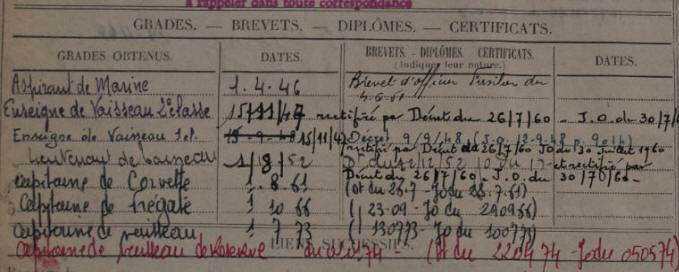 à rappeler dans toute correspondance
GRADES. — BREVETS. — DIPLÔMES. — CERTIFICATS.
GRADES OBTENUS. DATES. BREVETS. - DIPLÔMES. CERTIFICATS. (Indiquer leur nature.) DATES.
Aspirant de Marine 1.4.46 Brevet d'officier Fusilier du
4.6.51
Enseigne de Vaisseau 2e classe 15/11/47 rectifié par Décret du 26/7/60 - J.O. du 30/7/6
Enseigne de Vaisseau 1e cl. 15/11/4 Décret 9/9/48 (J.O. 12-9-48 p. 9014)
rectifié par Décret du 26/7/60 JO du 30 Juillet 1960
Lieutenant de vaisseau 1/8/52 Dt du 12/12/52 JO du et rectifié par
Décret du 26/7/60 - J.O. du 30/7/60 -
Capitaine de Corvette 1.8.61 (Dt du 26.7 - Jo du 28.7.61)
Capitaine de frégate 1 10 66 ( 23-09 - Jo du 290966)
Capitaine de vaisseau 1 7 73 ( 130773 - Jo du 100773)
LIENS SUCCESSIFS.
Capitaine de vaisseau de Réserve du 74 - (Dt du 220474 - Jo du 050574)